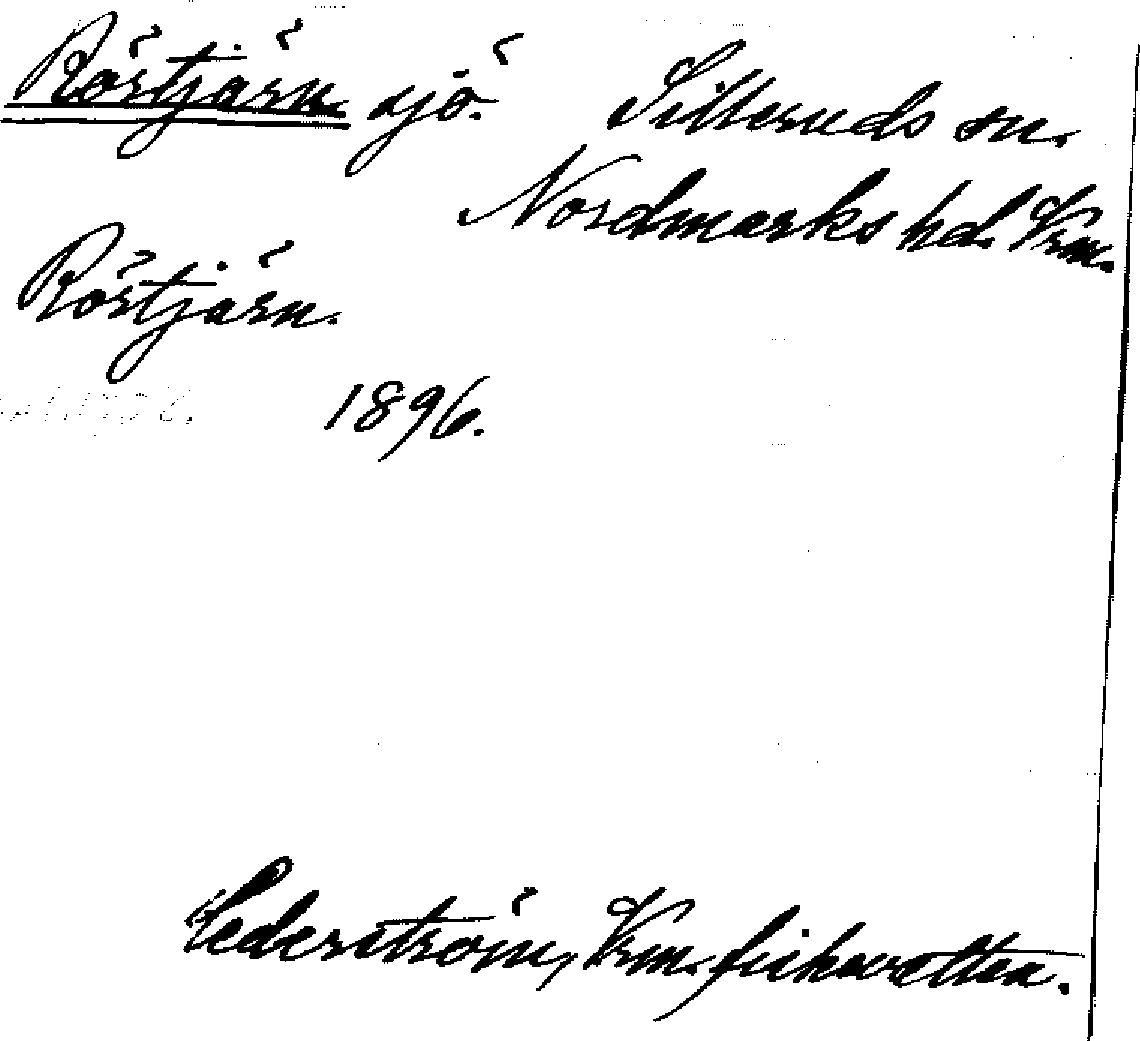 Rörtjärn. sjö. Silleruds sn.
Nordmarks hd. Vrm.
Rörtjärn.
1896.
Cederström, Vrm. fiskevatten.